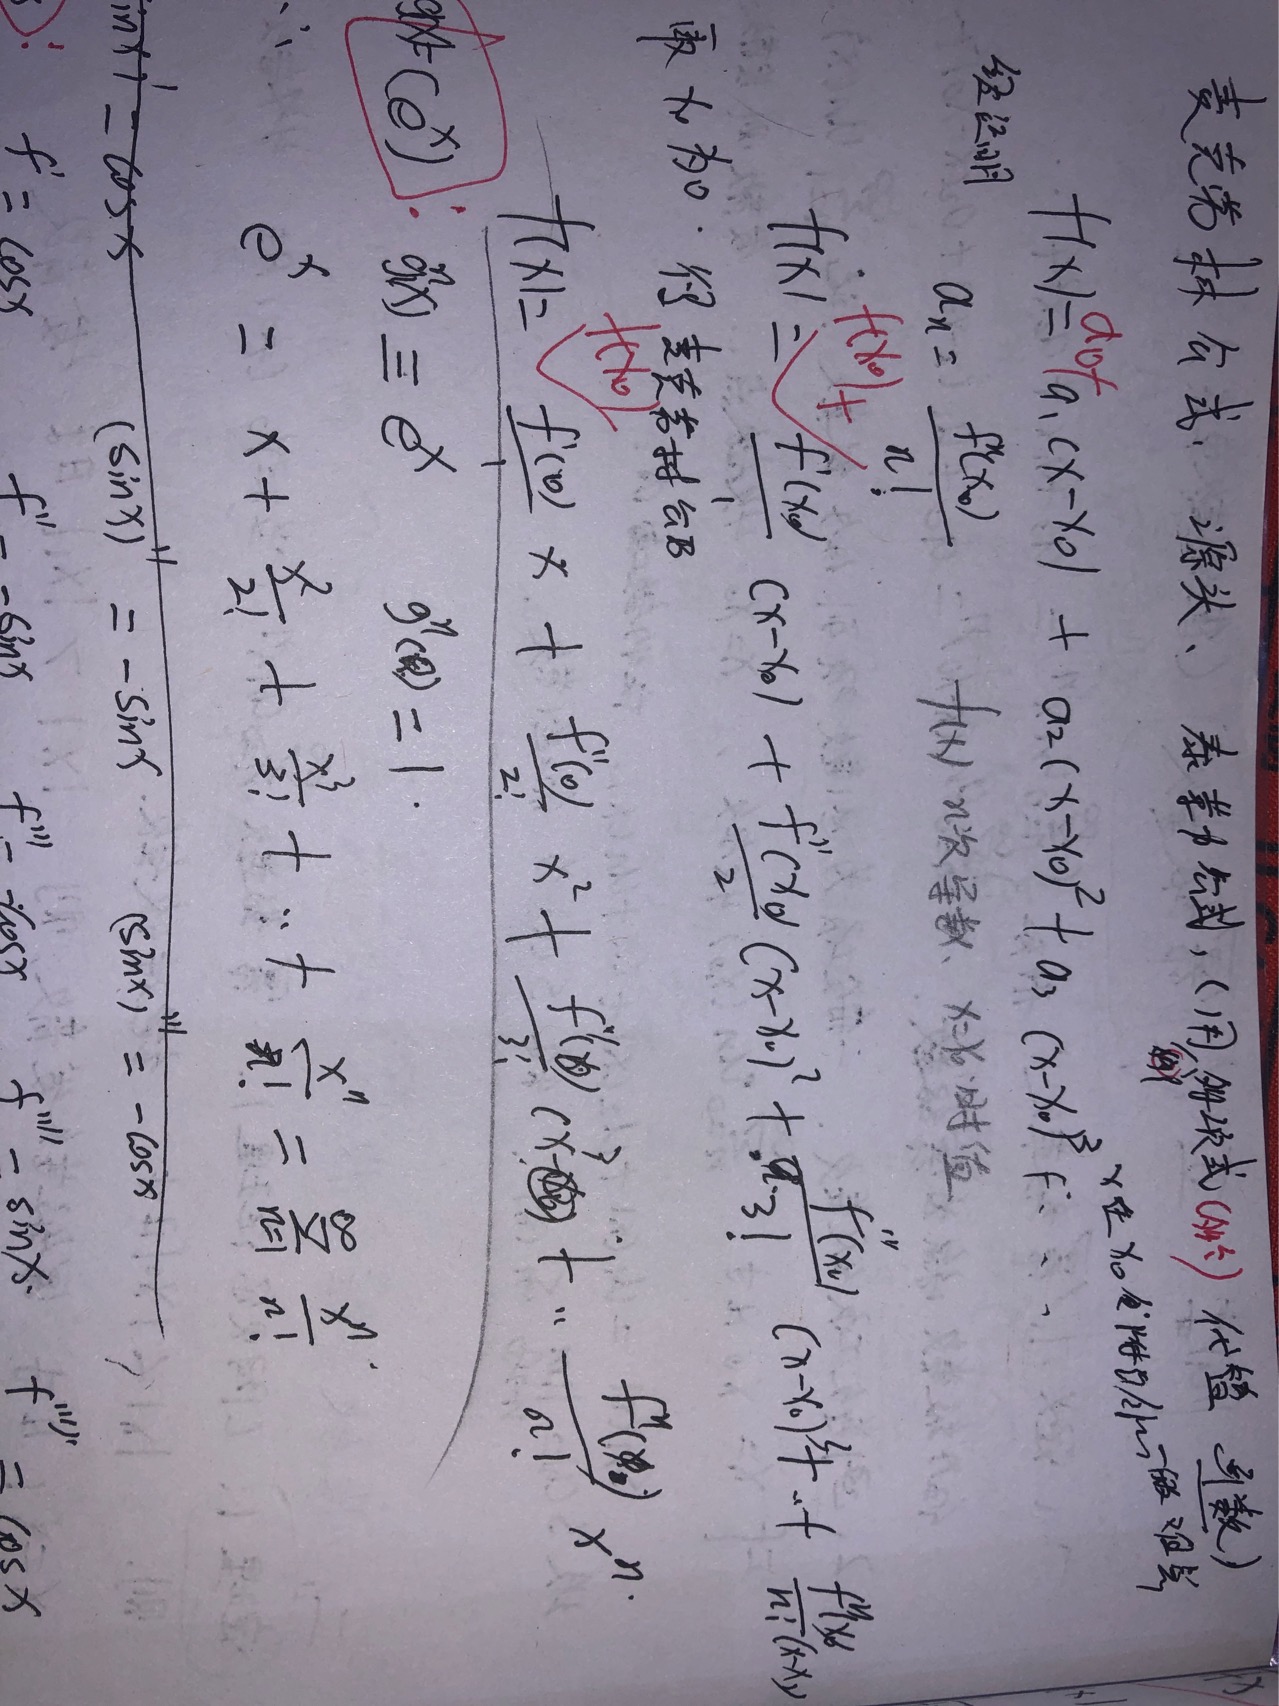 麦克劳林公式，源头、泰勒公式，(用 多项式 代替 函数)
f(x) = a₀+ a₁(x-x₀) + a₂(x-x₀)² + a₃(x-x₀)³ + …
经证明 aₙ = fⁿ(x₀) / n! f(x) n次导数、x=x₀ 时值
f(x) = f(x₀)+ f'(x₀) (x-x₀) + f''(x₀)/2 (x-x₀)² + f'''(x₀)/3! (x-x₀)³ + … + fⁿ(x₀)/n! (x-x₀)
取 x₀ 为0. 得 麦克劳林公式
f(x) = f(x₀) f'(0)/1 x + f''(0)/2! x² + f'''(0)/3! x³ + … fⁿ(0)/n! xⁿ.
(eˣ): gⁿ(x) ≡ eˣ gⁿ(0) = 1.
∴ eˣ = x + x²/2! + x³/3! + … + xⁿ/n! = ∞ Σ n=1 xⁿ/n!.
sinx' = cosx (sinx)'' = -sinx (sinx)''' = -cosx
f' = cosx f'' = -sinx f''' = -cosx f'''' = sinx. f''''' = cosx